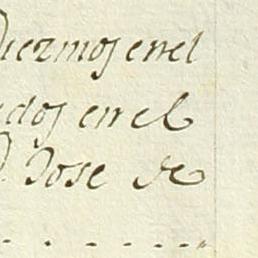 Diezmos en el
dos en el
D. Jose de